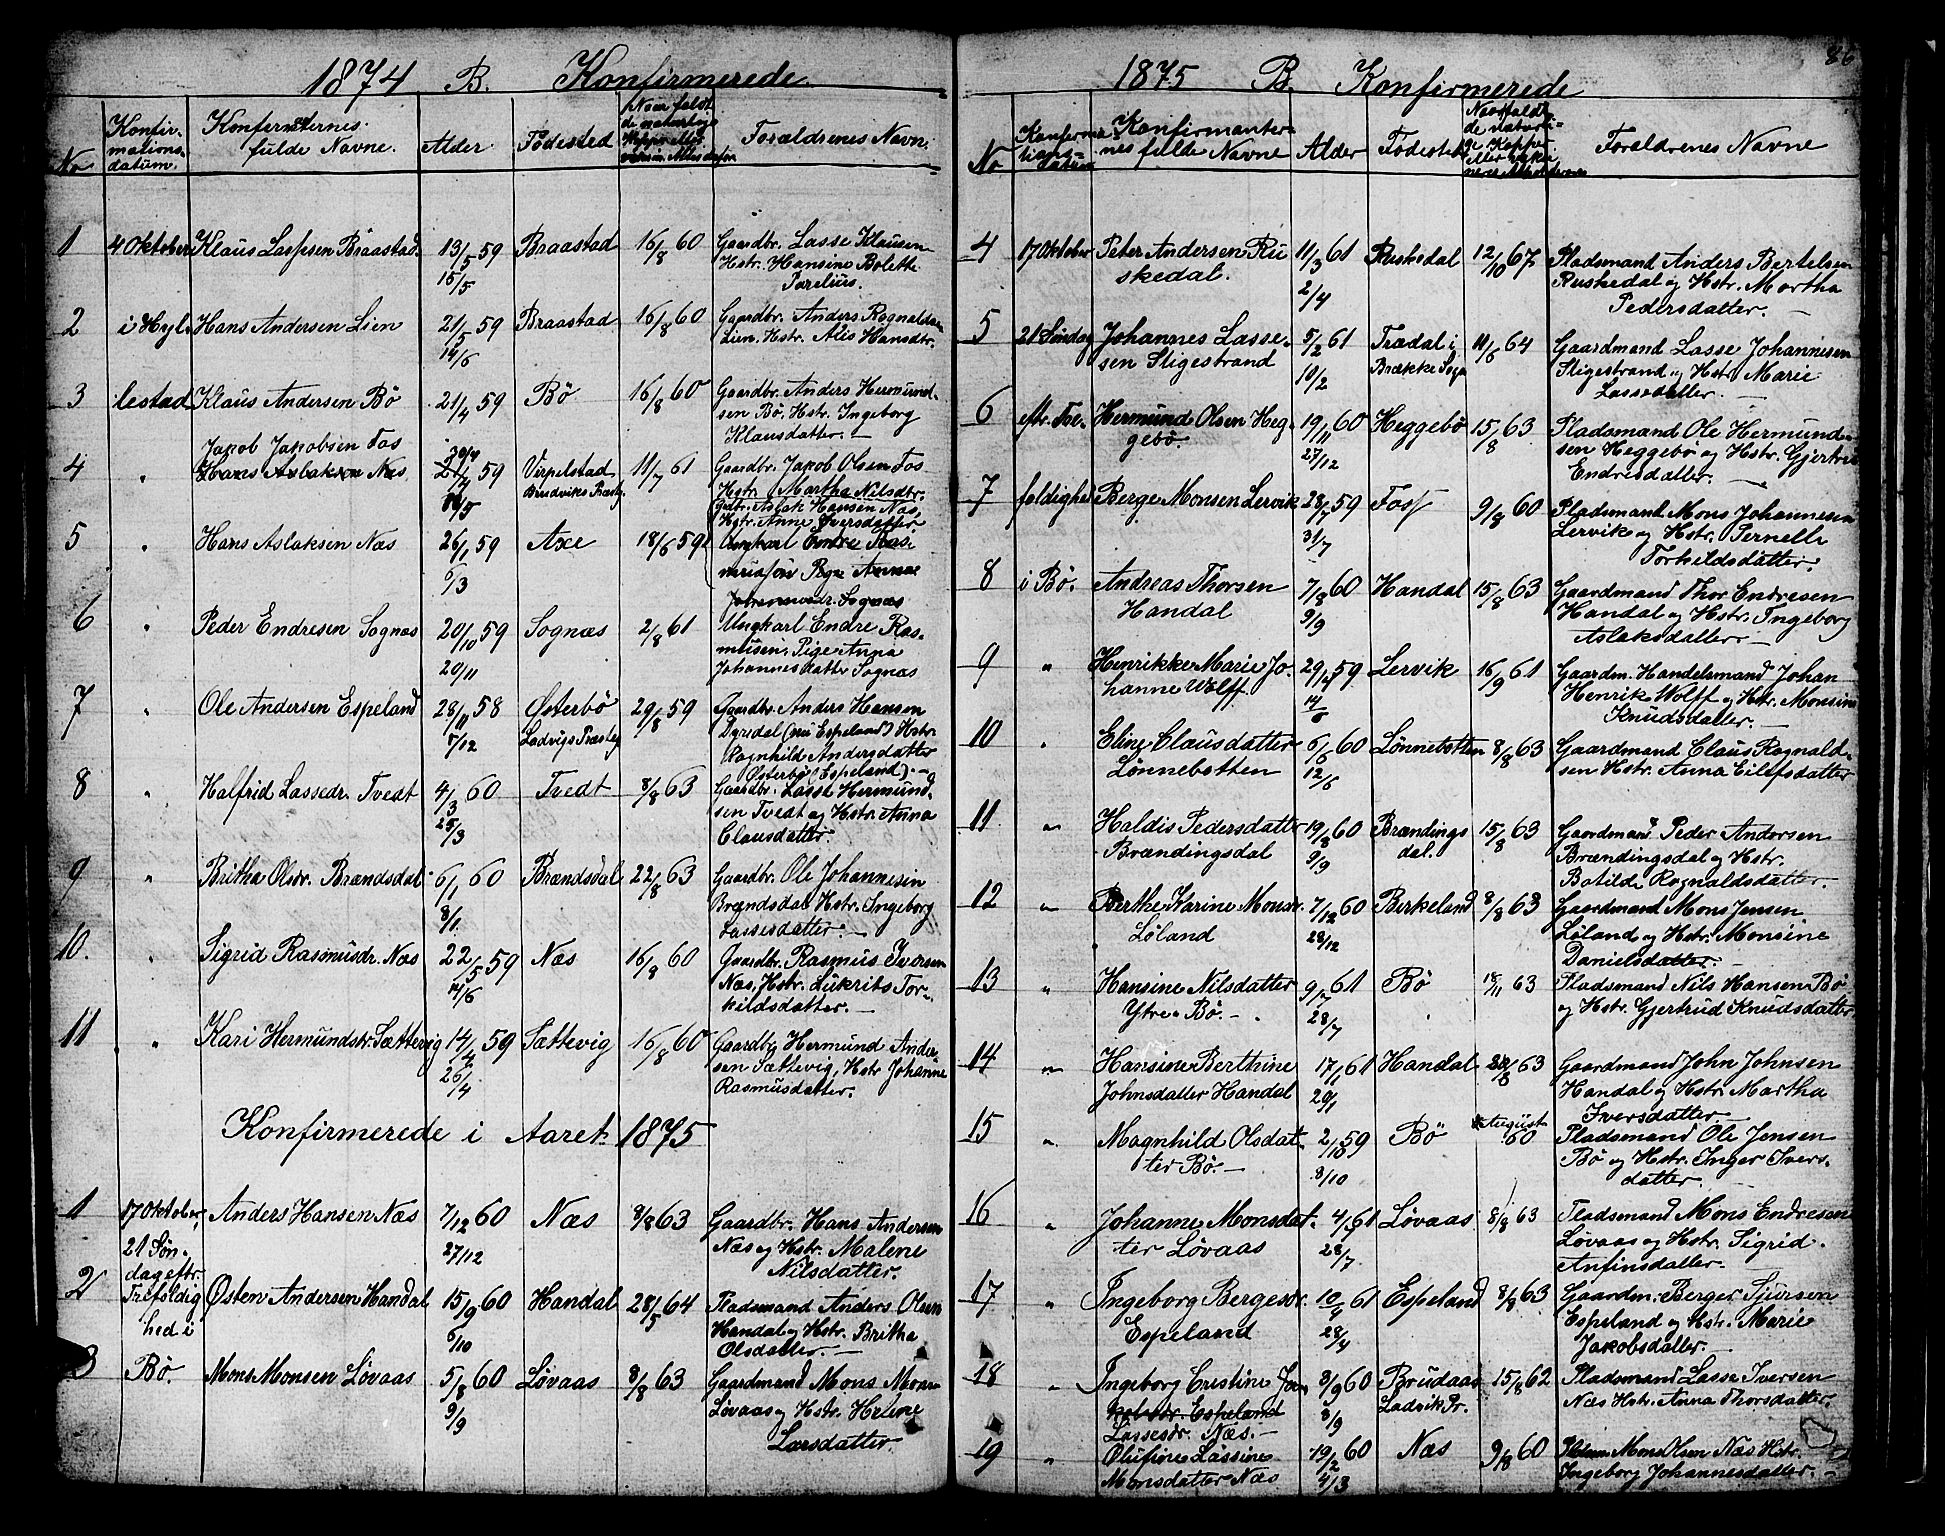 1874 B. Konfirmerede.
No
Konfir-
mations-
datum.
Konfirmternes
fulde Navne.
Alder.
Födested
Naar faldt
de naturlige
Forældrenes Navn.
1 4 Oktober Klaus Lassesen Bråastad. 13/5 59 Braastad 16/8 60 Gaardbr. Lasse Klausen
15/5 Hstr. Hansine Bolette
2 i Hyl- Hans Andersen Lien 21/5 59 Braastad 16/8 60 Gaardbr. Anders Rognaldsen
14/6 Lien. Hstr. Alis Hansdtr.
3 lestad Klaus Andersen Bö 21/4 59 Bö 16/8 60 Gaardbr. Anders Hermund-
sen Bö. Hstr. Ingeborg
Klausdatter. —
Jakob Jakobsen Fos
4 " Hans Aslaksen Næs 59 Virpelstad 11/7 61 Gaardbr. Jakob Olsen Fos
Brudviks Præstg. Hstr. Martha Nilsdtr.
Gdbr. Aslak Hansen Næs,
Hstr. Anne Iversdatter
5 " Hans Aslaksen Næs 26/1 59 Axe 18/6 59 Ungkarl Endre Ras-
6/3 Pige Anna
Sognæs
6 " Peder Endresen Sognæs 20/10 59 Sognæs 2/8 61 Ungkarl Endre Ras-
20/11 musen. Pige Anna
Johannesdatter Sognæs
7 " Ole Andersen Espeland 28/11 58 Østerbö 29/8 59 Gaardbr. Anders Hansen
7/12 Ladvigs Præstg. Dyredal (nu Espeland) Hstr.
Ragnhild Andersdatter
Østerbö (Espeland). —
8 " Halfrid Lassedr. Tvedt 4/3 60 Tvedt 8/8 63 Gaardbr. Lasse Hermund-
25/3 sen Tvedt og Hstr. Anna
Clausdatter.
9 " Britha Olsdr. Brændsdal 6/1 60 Brændsdal 22/8 63 Gaardbr. Ole Johannesen
8/1. Brændsdal Hstr. Ingeborg
Lassesdatter. —
10. " Sigrid Rasmusdr. Næs 22/5 59 Næs 16/8 60 Gaardbr. Rasmus Iversen
14/6 Næs, Hstr. Lukrits Tor-
kildsdatter. —
11 " Kari Hermundsdtr. Sættevig 14/4 59 Sættevig 16/8 60 Gaardbg Hermund Ander-
26/4 sen Sættevig, Hstr Johanne
Rasmusdatter.
Konfirmerede i Aaret 1875
1 17 Oktober, Anders Hansen Næs 7/12 60 Næs 8/8 63 Gaardbr. Hans Andersen
21 Søn- 27/12 Næs og Hstr. Malene
dag eftr. Nilsdatter.
2 Trefoldig Østen Andersen Handal 15/9 60 Handal 28/5 64 Pladsmand Anders Olsen
hed i 6/10 Handal og Hstr. Britha
Olsdatter. —
3 Bö. Mons Monsen Løvaas 5/8 60 Løvaas 8/8 63 Gaardmand Mons Mons
9/9 Løvaas og Hstr. Helene
Larsdatter.
86
1875 B. Konfirmerede
No
Konfirma-
tions-
datum
Konfirmanter-
nes fulde Navne
Alder
Födested
Naar faldt
de naturli-
ge Kopper
Forældrenes Navne
4 17 Oktober Peter Andersen Ru 11/3 61 Ruskedal 12/10 67 Pladsmand Anders Bertelsen
skedal. 2/4 Ruskedal og Hstr. Martha
Pedersdatter. —
5 21 Söndag Johannes Lasse- 5/2 61 Trædal i 11/6 64 Gaardmand Lasse Johannesen
sen Sligestrand 10/2 Brække Sogn Sligestrand og Hstr. Marie
Lassedatter. —
6 eftr. Tre- Hermund Olsen Heg- 19/11 60 Heggebö 15/8 63 Pladsmand Ole Hermund-
gebö. 27/12 sen Heggebö og Hstr. Gjertru
Endresdatter. —
7 foldighed Berge Monsen Lervik 28/7 59 Foss 9/8 60 Pladsmand Mons Johannesen
31/7 Lervik og Hstr. Pernelle
Torkildsdatter.
8 i Bö. Andreas Thorsen 7/8 60 Handal 15/8 63 Gaardmand Thor Endresen
Handal 9/9 Handal og Hstr. Ingeborg
Aslaksdatter —
9 " Henrikke Marie Jo- 29/4 59 Lervik 16/9 61 Gaardm. Handelsmand Johan
hanne Wolff 14/6 Henrik Wolff og Hstr. Monsine
Knudsdatter. —
10 " Eline Clausdatter 6/6 60 Lönnebotten 8/8 63 Gaardmand Claus Rognald-
Lönnebotten 12/6 sen Hstr. Anna Eilifsdatter
11 " Haldis Pedersdatter 19/8 60 Brændings 15/8 63 Gaardmand Peder Andersen
Brændingsdal 9/9 dal. Brændingsdal og Hstr.
Botilde Rognaldsdatter.
12 " Berthe Karine Monsdr. 7/12 60 Birkeland 8/8 63 Gaardmand Mons Jensen
Løland 28/12 Løland og Hstr. Monsine
Danielsdatter. —
13 " Hansine Nilsdatter 9/7 61 Bö 18/11 63 Pladsmand Nils Hansen Bö
Ytre Bö. — 28/7 og Hstr. Gjertrud Knudsdatter
14 " Hansine Berthine 17/1 61 Handal 63 Gaardmand John Johnsen
Johnsdatter Handal 29/1 Handal og Hstr. Martha
Iversdatter
15 " Magnhild Olsdat- 2/10 59 Bö August 60 Pladsmand Ole Jensen
ter Bö. — 8/10 Bö og Hstr. Inger Ivers-
datter.
16 " Johanne Monsdat- 4/7 61 Løvaas 8/8 63 Pladsmand Mons Endresen
ter Løvaas 28/7 Løvaas og Hstr. Sigrid
Anfinsdatter. —
17 " Ingeborg Bergesdr. 10/4 61 Espeland 8/8 63 Gaardm. Berger Sjursen
Espeland 28/4 Espeland og Hstr. Marie
Jakobsdatter.
18 " Ingeborg Cristine 8/9 60 Brudaas 15/8 62 Pladsmand Lasse Iversen
Espeland 8/9 Ladvik Pr. Næs Hstr. Anna Thorsdatter.
Lassesdr. Næs. —
19 " Olufine Lassine 19/2 60 Næs 9/8 60 Mons Olsen Næs Hstr.
Monsdatter Næs 4/3 Ingeborg Johannesdatter. —